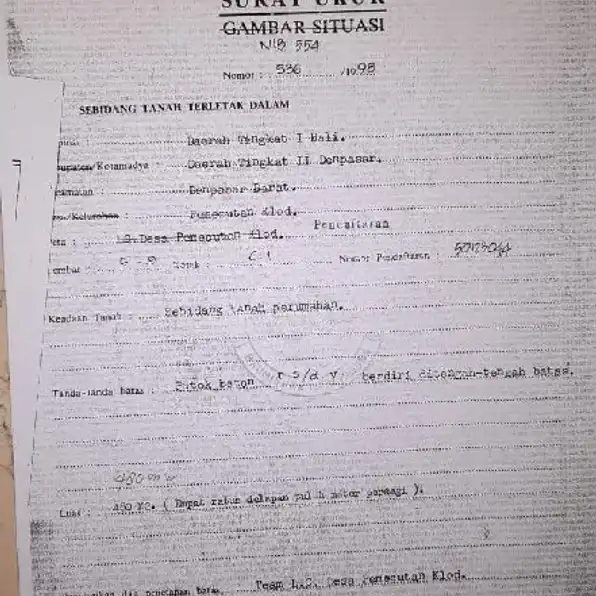 SURAT UKUR
GAMBAR SITUASI
NIB 554
Nomor : 536 /1998
SEBIDANG TANAH TERLETAK DALAM
Daerah Tingkat I Bali.
Kotamadya : Daerah Tingkat II Denpasar.
Denpasar Barat.
Kelurahan : Pemecutan Klod.
Desa Pemecutan Klod. Pendaftaran
Nomor Pendaftaran :
Keadaan Tanah : Sebidang tanah perumahan.
Tanda-tanda batas : Patok beton r s/d v berdiri ditengah-tengah batas.
480 m
Luas : 480 M2. ( Empat ratus delapan puluh meter persegi ).
batas. Team Desa Pemecutan Klod.